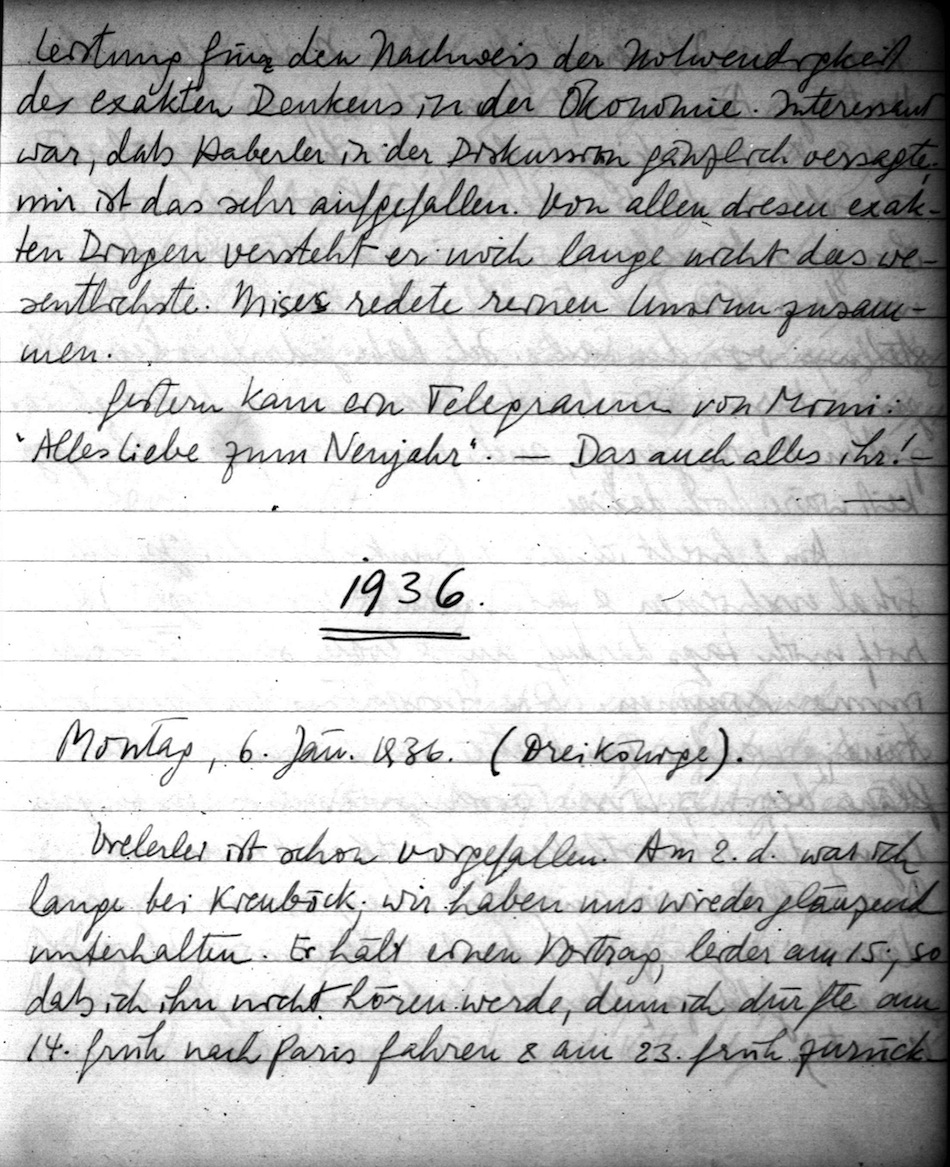 leistung für den Nachweis der Notwendigkeit
des exakten Denkens in der Ökonomie. Interessant
war, daß Haberler in der Diskussion gänzlich versagte;
mir ist das sehr aufgefallen. Von allen diesen exak-
ten Dingen versteht er noch lange nicht das we-
sentlichste. Mises redete reinen Unsinn zusam-
men.
Gestern kam ein Telegramm von Mimi:
"Alles Liebe zum Neujahr". — Das auch alles ihr! —
1936.
Montag, 6. Jän. 1936. (Dreikönige).
Vielerlei ist schon vorgefallen. Am 2. d. war ich
lange bei Kienböck; wir haben uns wieder glänzend
unterhalten. Er hält einen Vortrag, leider am 15., so
daß ich ihn nicht hören werde, denn ich dürfte am
14. früh nach Paris fahren & am 23. früh zurück